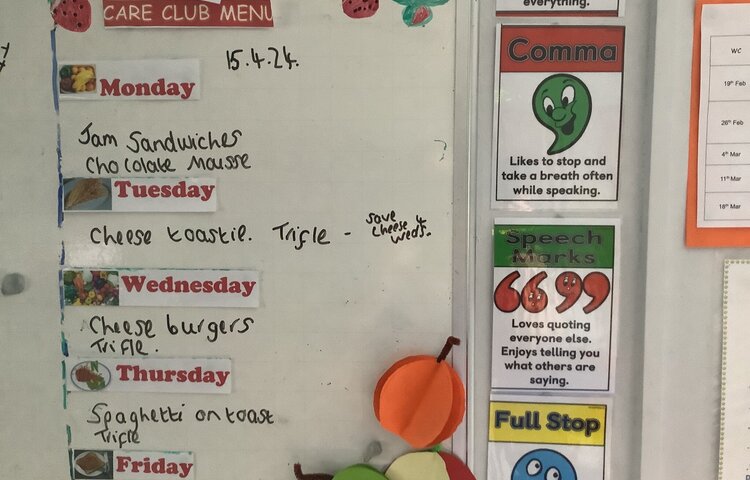 CARE CLUB MENU
15.4.24.
Monday
Jam Sandwiches
Chocolate Mousse
Tuesday
Cheese toastie. Trifle - save
cheese 4
weds.
Wednesday
Cheese burgers
Trifle.
Thursday
Spaghetti on toast
Trifle
Friday
everything.
Comma
Likes to stop and
take a breath often
while speaking.
Speech
Marks
Loves quoting
everyone else.
Enjoys telling you
what others are
saying.
Full Stop
WC
19th Feb
26th Feb
4th Mar
11th Mar
18th Mar